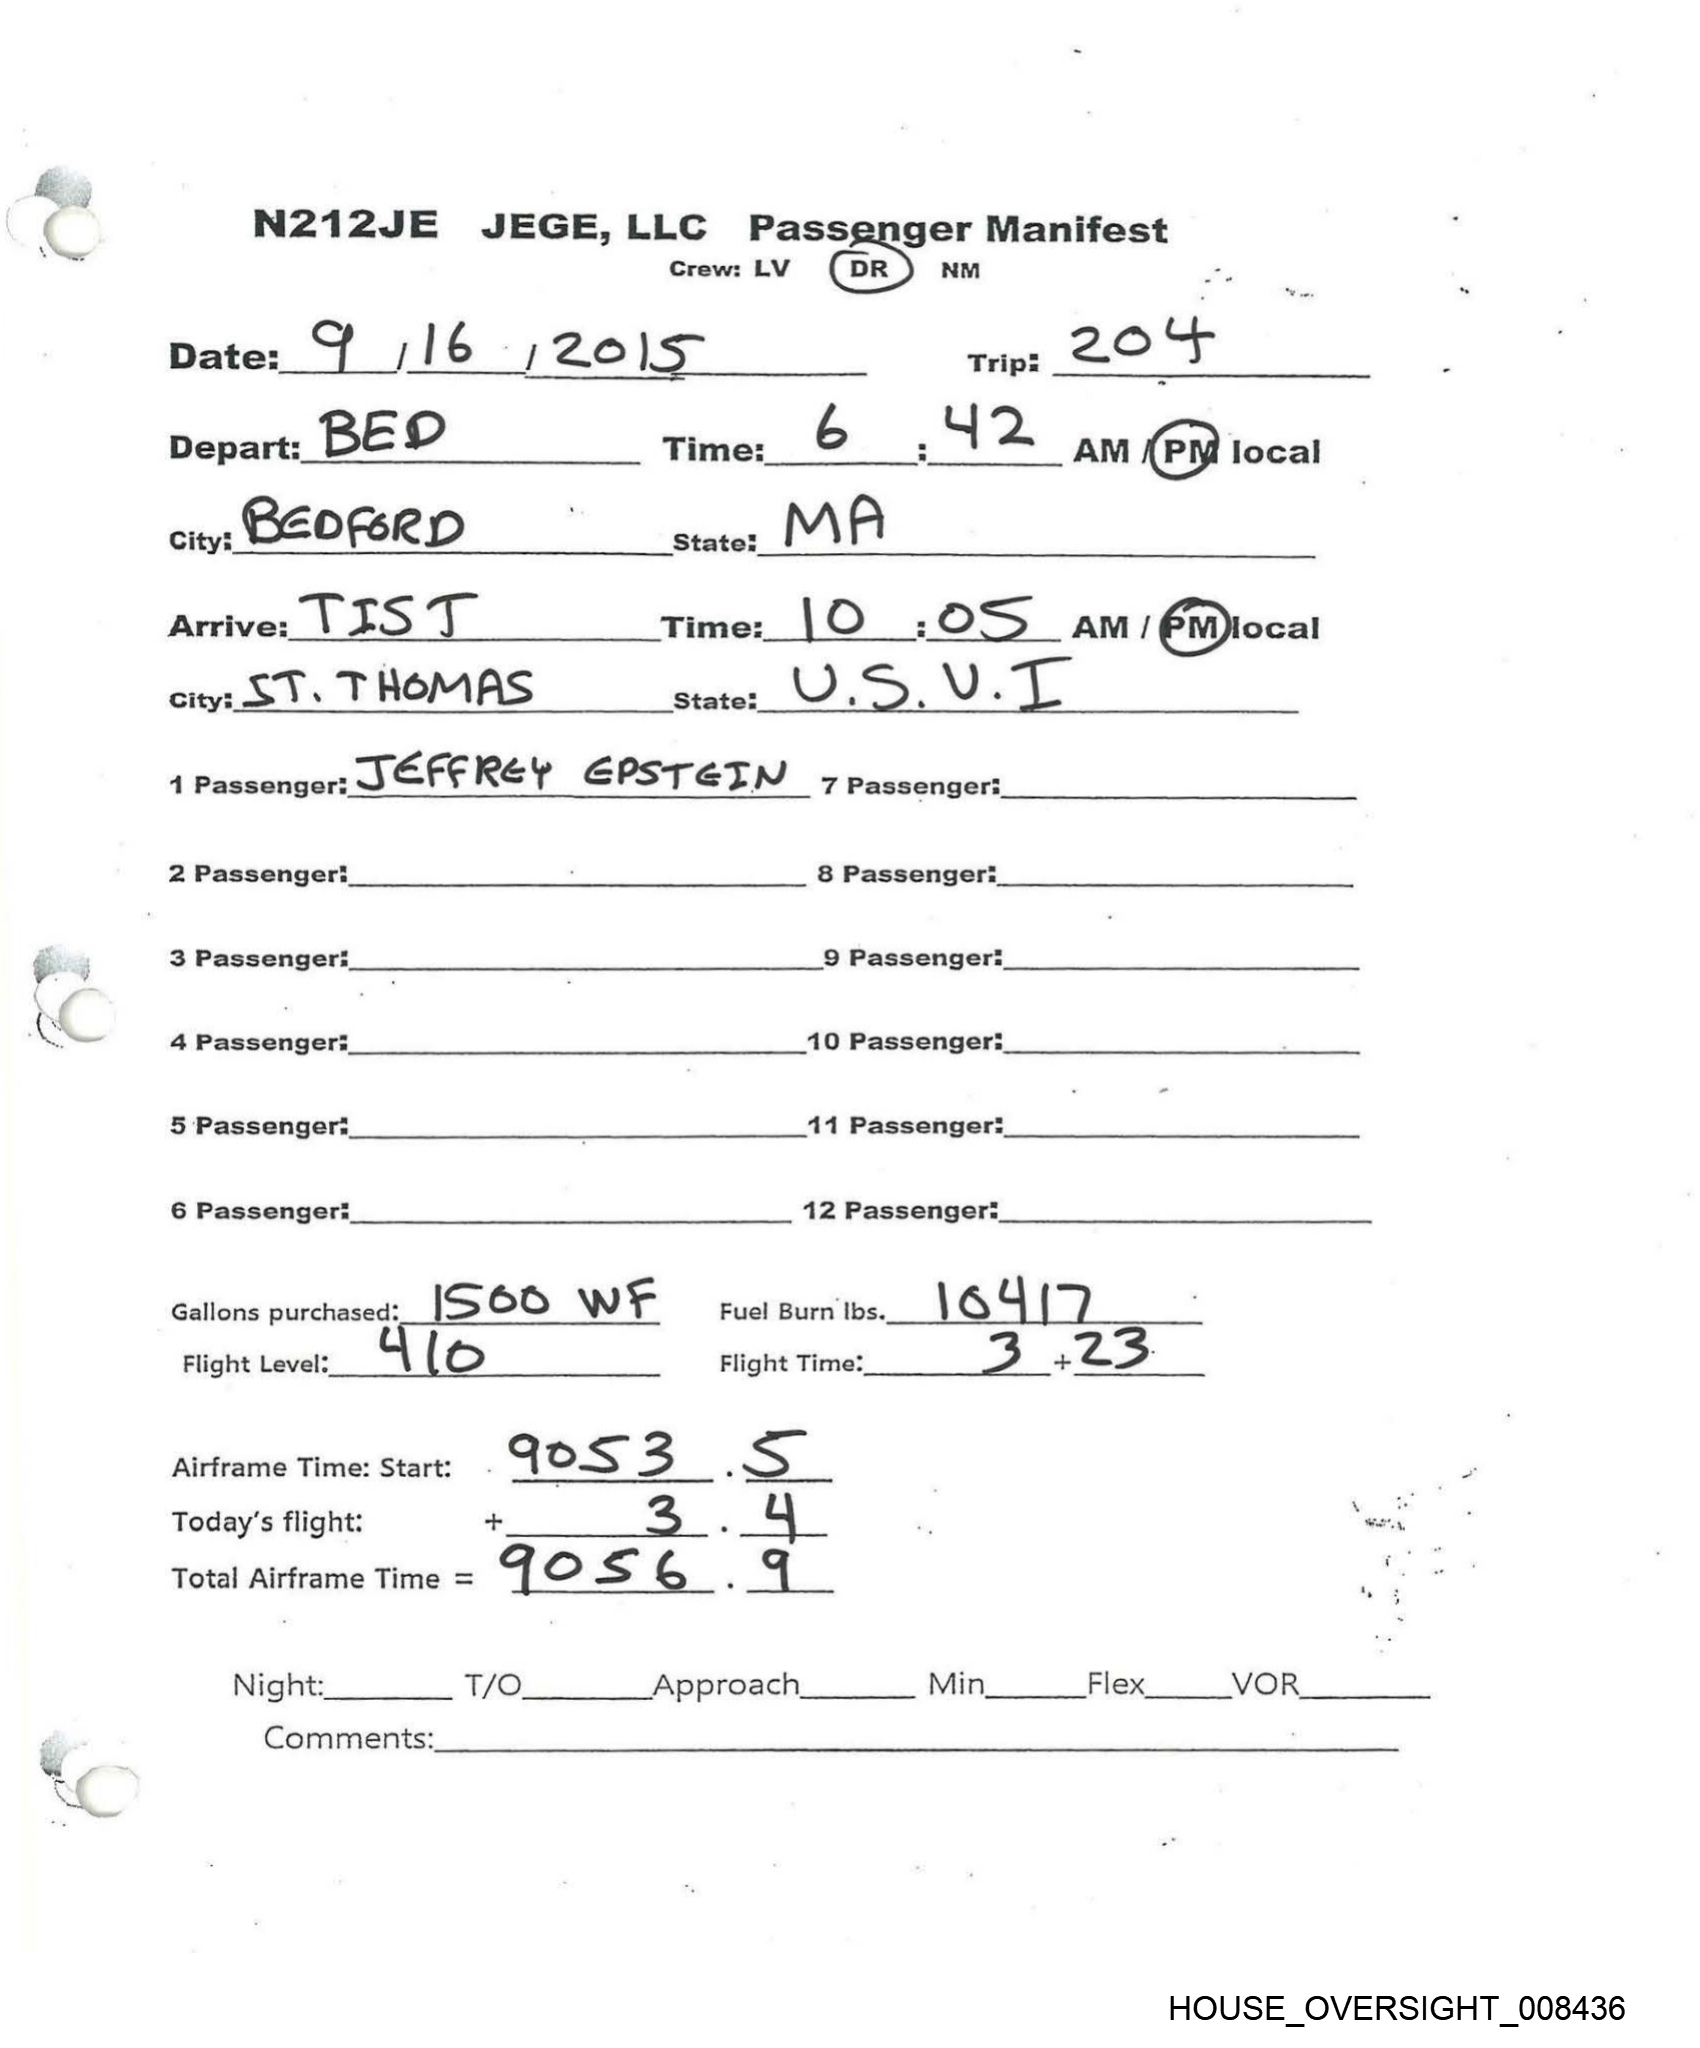 N212JE JEGE, LLC Passenger Manifest
Crew: LV DR NM
Date: 9 / 16 / 2015 Trip: 204
Depart: BED Time: 6 : 42 AM / PM local
City: BEDFORD State: MA
Arrive: TIST Time: 10 : 05 AM / PM local
City: ST. THOMAS State: U.S.V.I
1 Passenger: JEFFREY EPSTEIN 7 Passenger:
2 Passenger: 8 Passenger:
3 Passenger: 9 Passenger:
4 Passenger: 10 Passenger:
5 Passenger: 11 Passenger:
6 Passenger: 12 Passenger:
Gallons purchased: 1500 WF Fuel Burn lbs. 10417
Flight Level: 410 Flight Time: 3 + 23
Airframe Time: Start: 9053 . 5
Today's flight: + 3 . 4
Total Airframe Time = 9056 . 9
Night: T/O Approach Min Flex VOR
Comments:
HOUSE_OVERSIGHT_008436